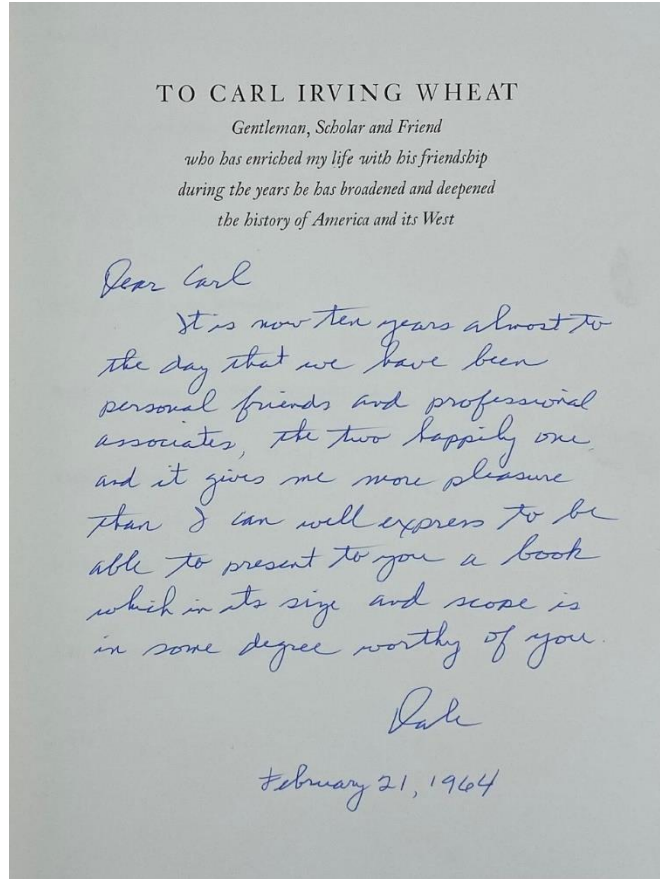 TO CARL IRVING WHEAT
Gentleman, Scholar and Friend
who has enriched my life with his friendship
during the years he has broadened and deepened
the history of America and its West
Dear Carl
It is now ten years almost to
the day that we have been
personal friends and professional
associates, the two happily one,
and it gives me more pleasure
than I can well express to be
able to present to you a book
which in its size and scope is
in some degree worthy of you.
Dale
February 21, 1964